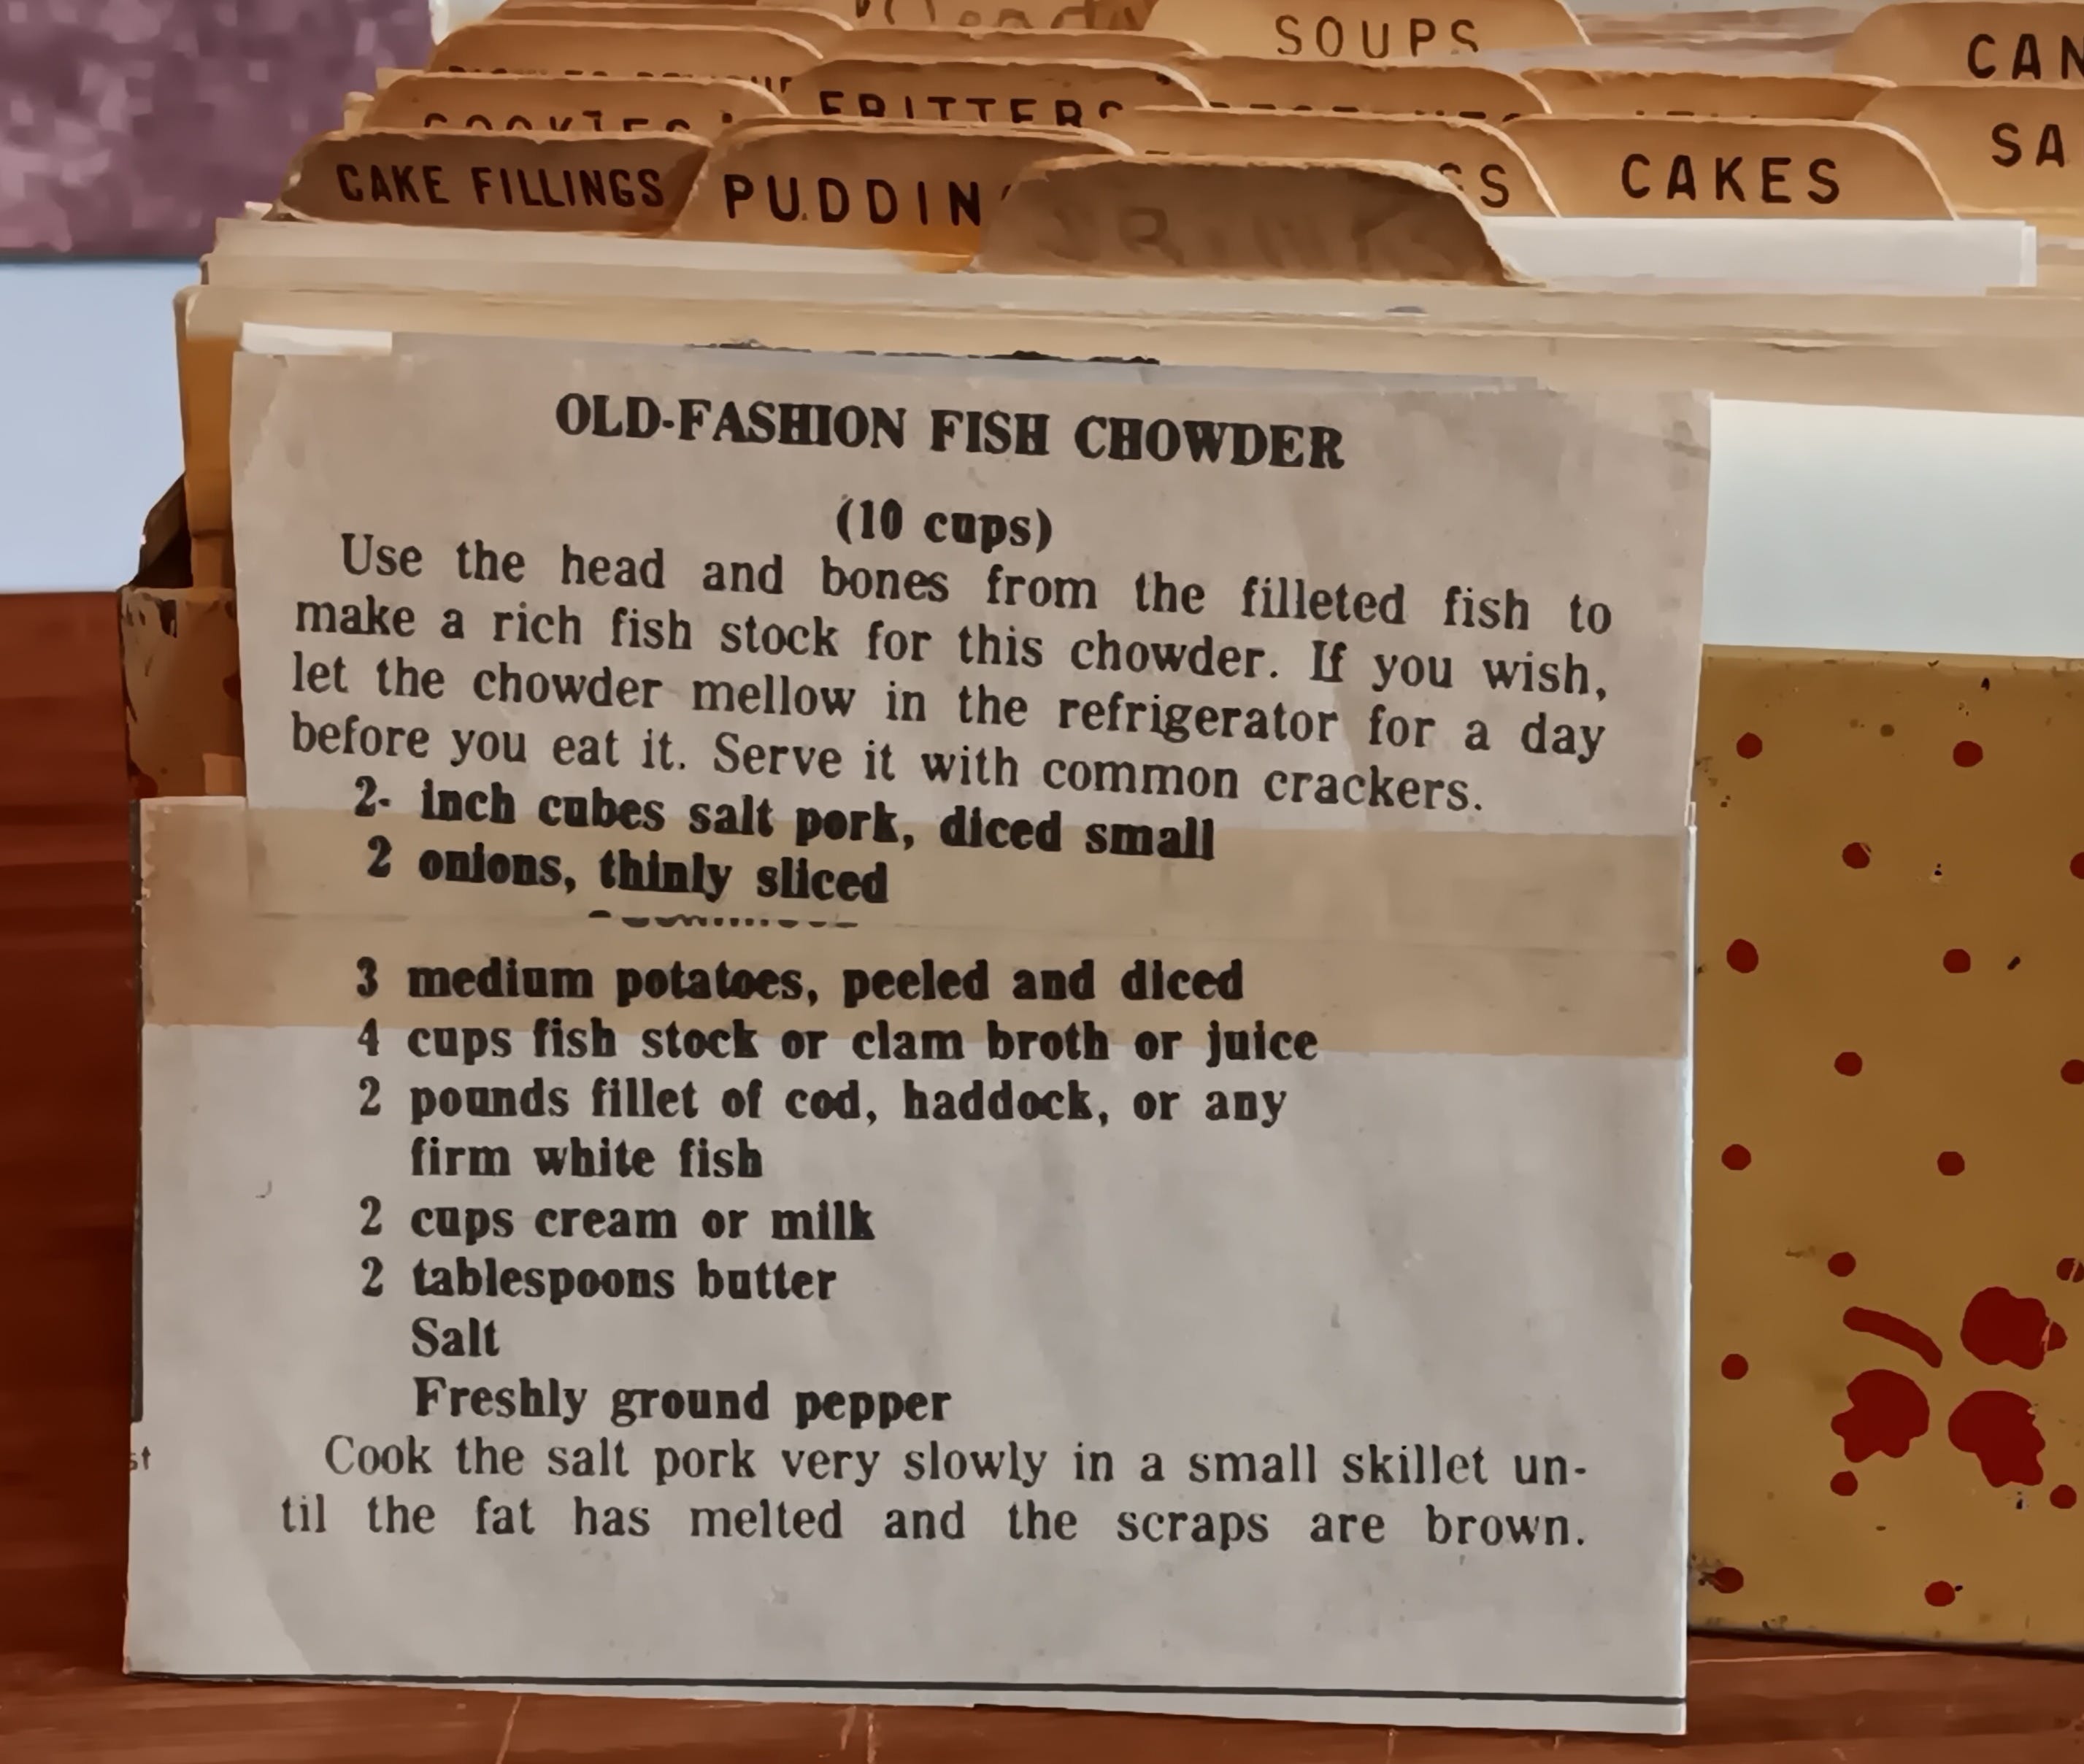 SOUPS
CAN
FRITTERS
SA
COOKIES
CAKE FILLINGS
PUDDIN
GS
CAKES
DRINKS
OLD-FASHION FISH CHOWDER
(10 cups)
Use the head and bones from the filleted fish to
make a rich fish stock for this chowder. If you wish,
let the chowder mellow in the refrigerator for a day
before you eat it. Serve it with common crackers.
2- inch cubes salt pork, diced small
2 onions, thinly sliced
3 medium potatoes, peeled and diced
4 cups fish stock or clam broth or juice
2 pounds fillet of cod, haddock, or any
firm white fish
2 cups cream or milk
2 tablespoons butter
Salt
Freshly ground pepper
st
Cook the salt pork very slowly in a small skillet un-
til the fat has melted and the scraps are brown.